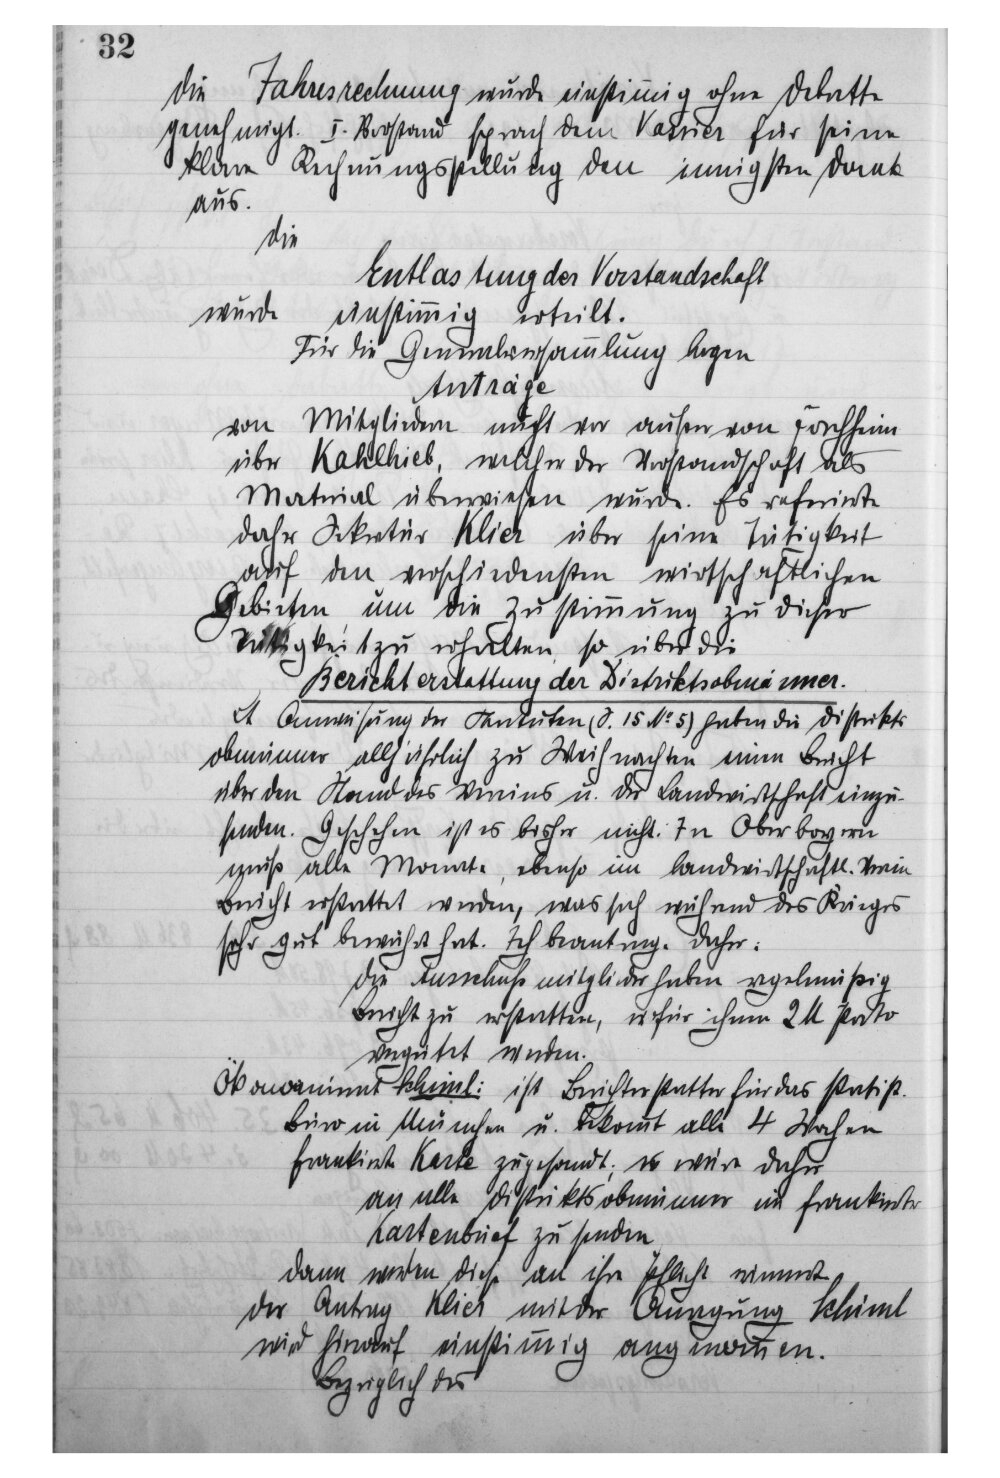 32
Die Jahresrechnung wurde einstimmig ohne Debatte
genehmigt. I. Vorstand sprach dem Kassier für seine
klare Rechnungsstellung den innigsten Dank
aus.
Die
Entlastung der Vorstandschaft
wurde einstimmig erteilt.
Für die Generalversammlung lagen
Anträge
von Mitgliedern nicht vor außer von Forchheim
über Kahlhieb, welcher der Vorstandschaft als
Material überwiesen wurde. Es referierte
daher Sekretär Klier über seine Tätigkeit
auf den verschiedensten wirtschaftlichen
Gebieten um die Zustimmung zu dieser
Tätigkeit zu erhalten, so über die
Berichterstattung der Distriktsobmänner.
Lt Anweisung der Statuten (S. 15 No 5) haben die Distrikts
obmänner alljährlich zu Weihnachten einen Bericht
über den Stand des Vereins u. der Landwirtschaft einzu-
senden. Geschehen ist es bisher nicht. In Oberbayern
muß alle Monate, ebenso im landwirtschaftl. Verein
Bericht erstattet werden, was sich während des Krieges
sehr gut bewährt hat. Ich beantrage daher:
Die Ausschußmitglieder haben regelmäßig
Bericht zu erstatten, wofür ihnen 2 M Porto
vergütet werden.
Ökonomierat Schiml: ist Berichterstatter für das statist.
Büro in München u. bekomt alle 4 Wochen
frankierte Karte zugesandt; es wäre daher
an alle Distriktsobmänner ein frankierter
Kartenbrief zu senden
dann werden diese an ihre Pflicht erinnert.
Der Antrag Klier mit der Anregung Schiml
wird hierauf einstimmig angenommen.
Bezüglich des